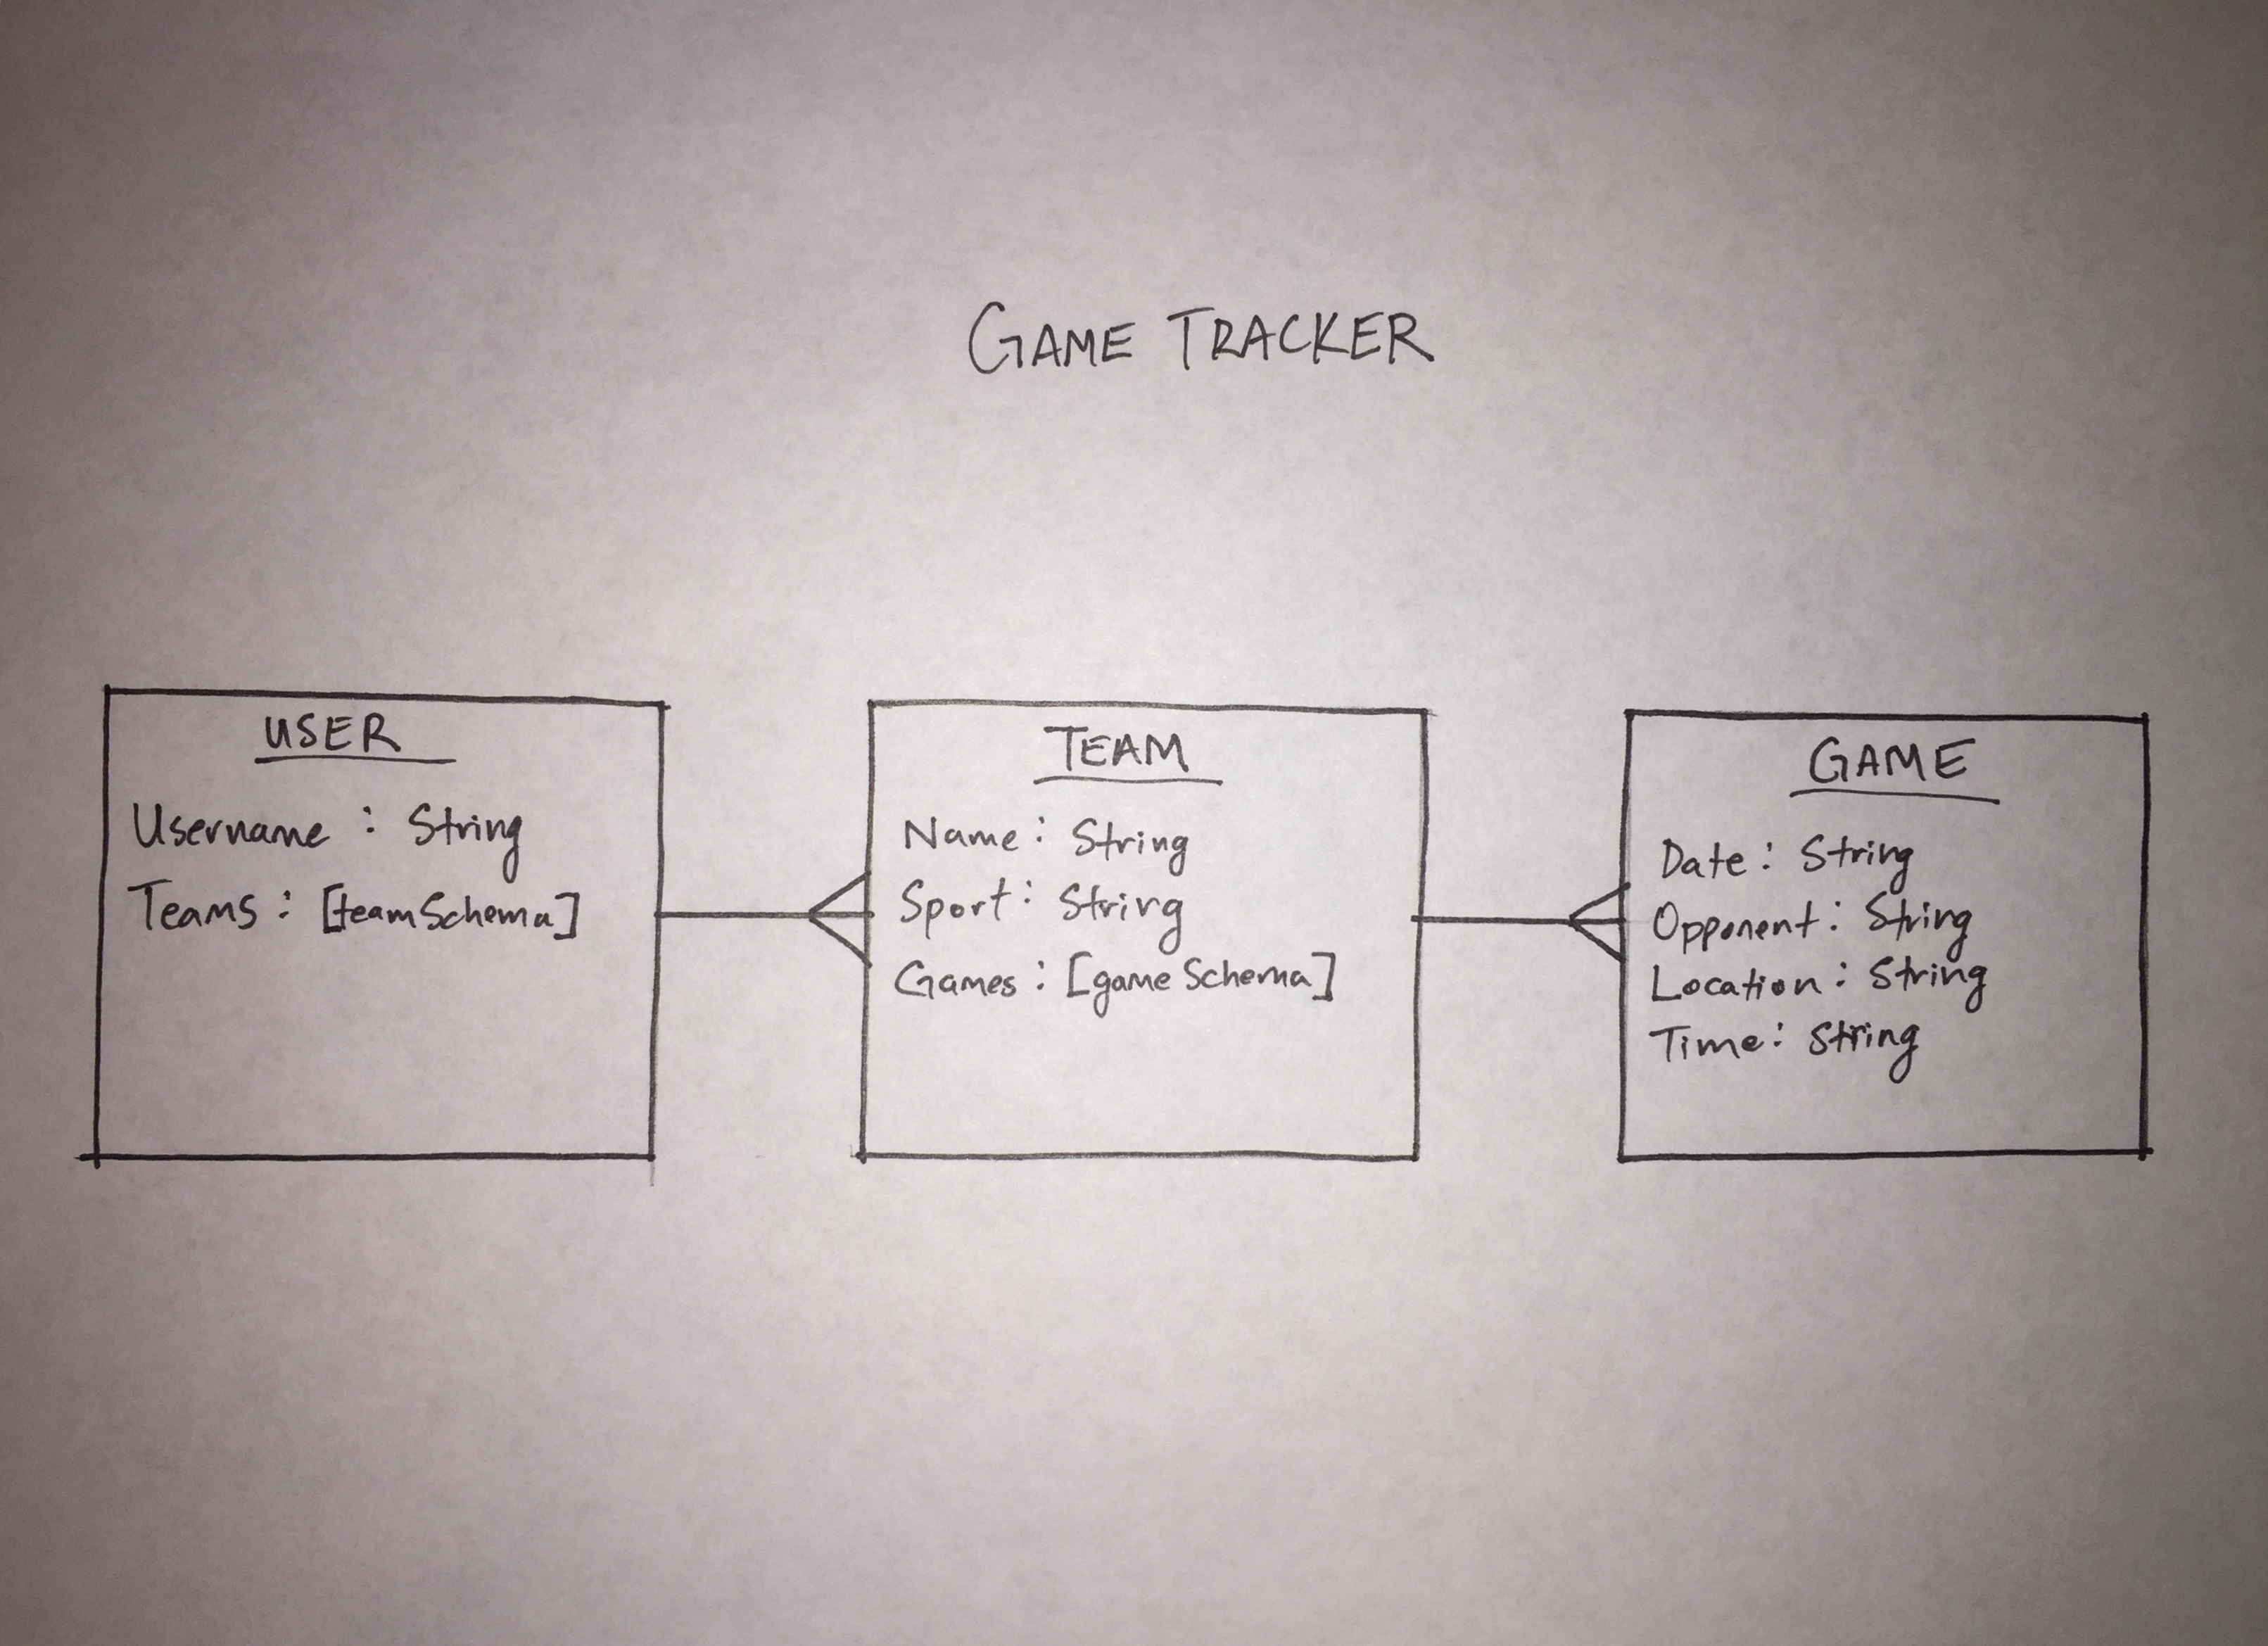 GAME TRACKER
USER
Username : String
Teams : [teamSchema]
TEAM
Name : String
Sport : String
Games : [gameSchema]
GAME
Date : String
Opponent : String
Location : String
Time : String